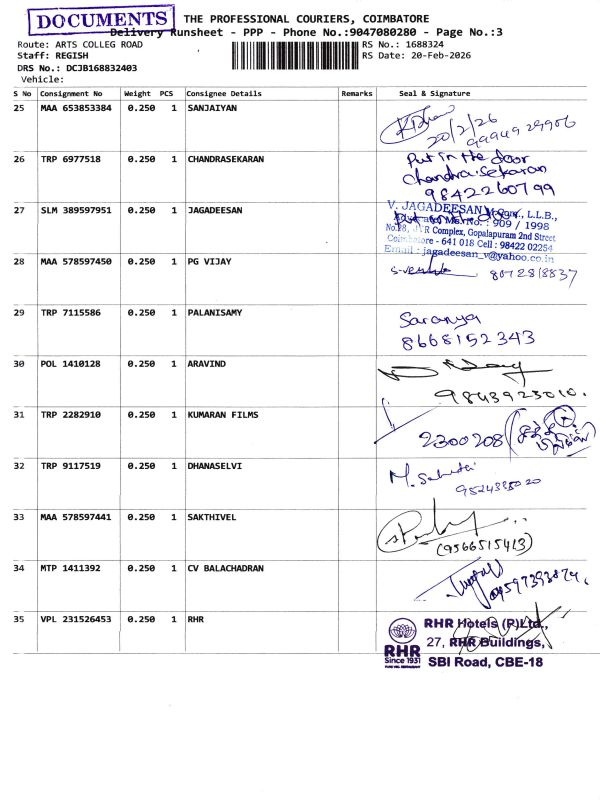 DOCUMENTS
THE PROFESSIONAL COURIERS, COIMBATORE
Delivery Runsheet - PPP - Phone No.:9047080280 - Page No.:3
Route: ARTS COLLEG ROAD
RS No.: 1688324
Staff: REGISH
RS Date: 20-Feb-2026
DRS No.: DCJB168832403
Vehicle:
S No Consignment No Weight PCS Consignee Details Remarks Seal & Signature
25 MAA 653853384 0.250 1 SANJAIYAN
20/2/26
26 TRP 6977518 0.250 1 CHANDRASEKARAN
Put in the door
Chandra.Sekaran
9842260799
27 SLM 389597951 0.250 1 JAGADEESAN
V. JAGADEESAN L.L.B.,
No. : 909 / 1998
R Complex, Gopalapuram 2nd Street
Coimbatore - 641 018 Cell : 98422 02254
Email : jagadeesan_v@yahoo.co.in
28 MAA 578597450 0.250 1 PG VIJAY
29 TRP 7115586 0.250 1 PALANISAMY
Saranya
8668152343
30 POL 1410128 0.250 1 ARAVIND
9843923010.
31 TRP 2282910 0.250 1 KUMARAN FILMS
2300208
32 TRP 9117519 0.250 1 DHANASELVI
33 MAA 578597441 0.250 1 SAKTHIVEL
(9566515413)
34 MTP 1411392 0.250 1 CV BALACHADRAN
35 VPL 231526453 0.250 1 RHR
RHR Hotels (P)Ltd.,
27, RHR Buildings,
SBI Road, CBE-18
RHR
Since 1931